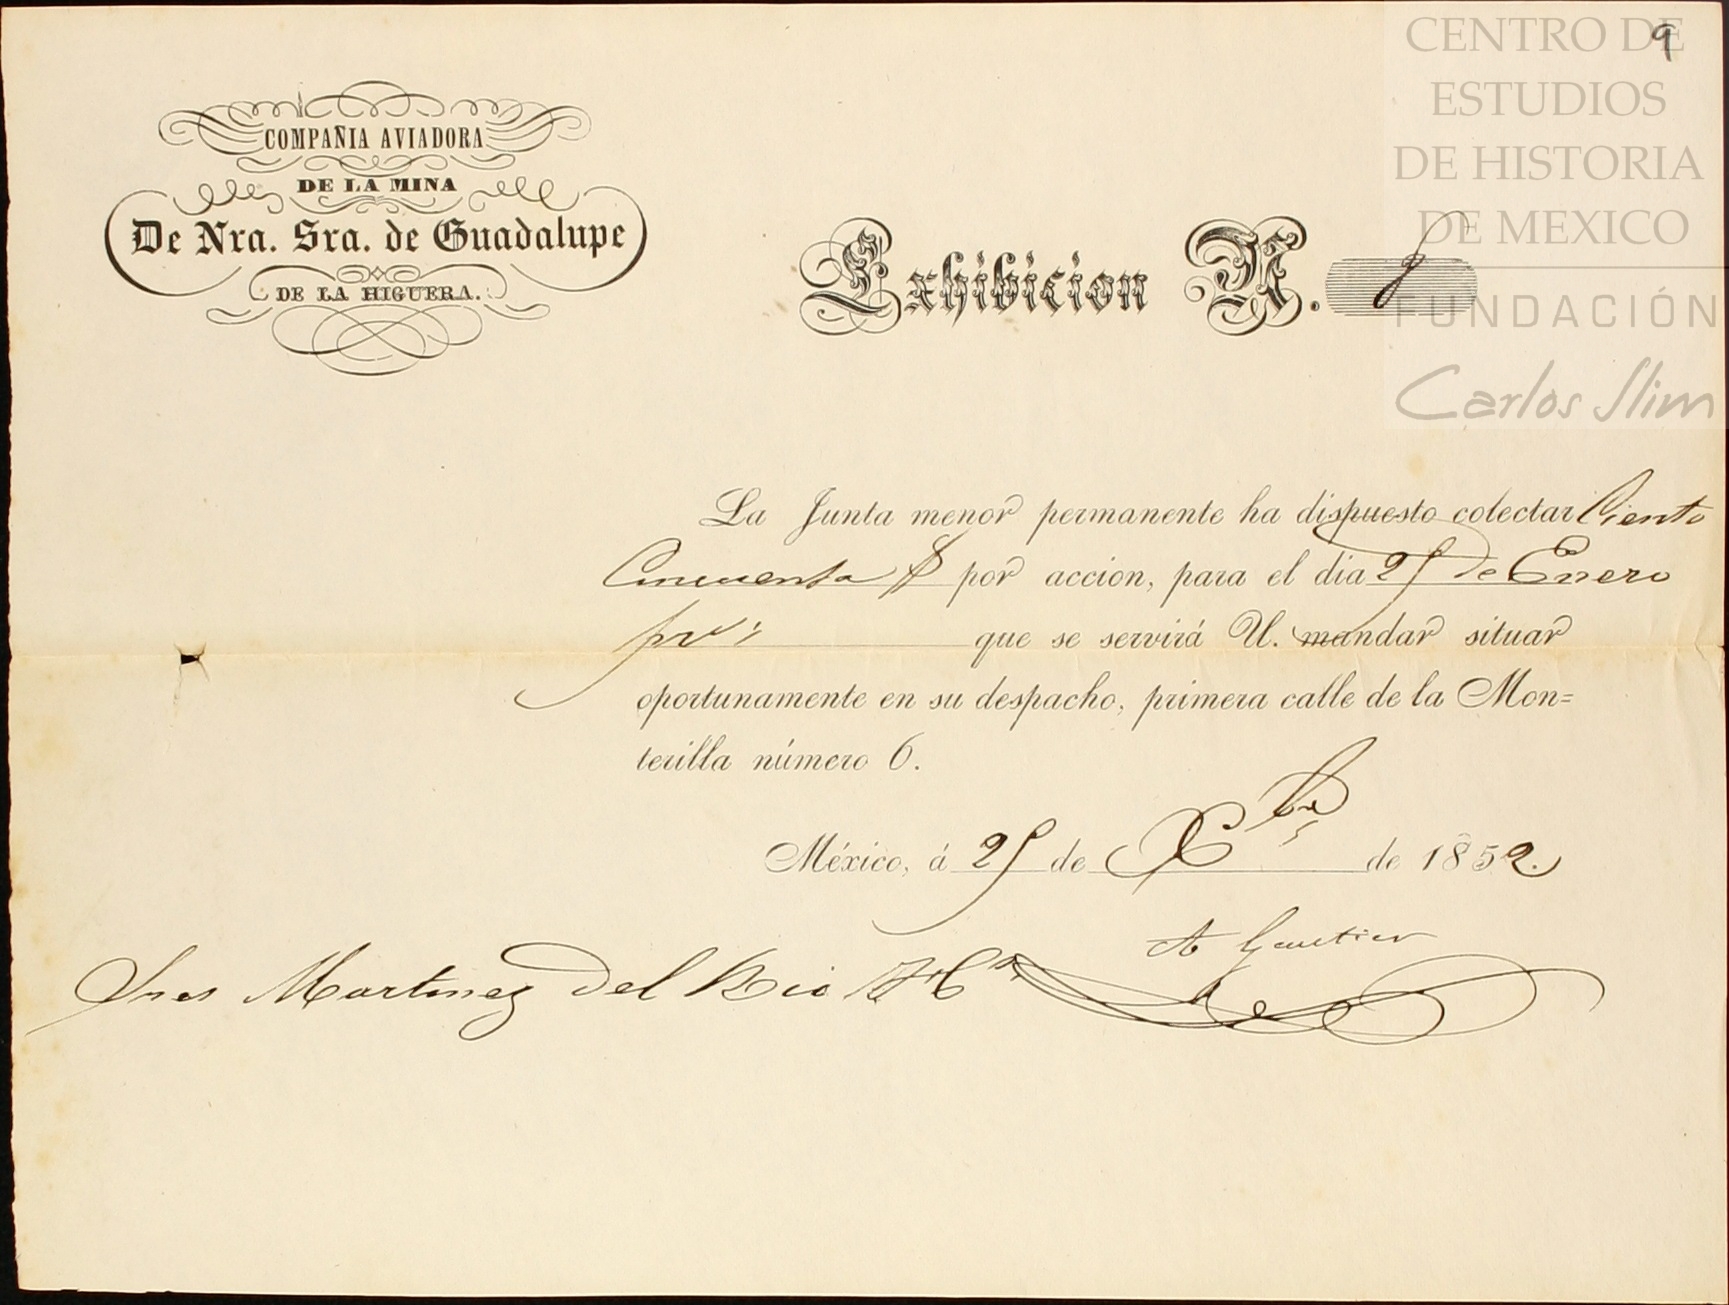 9
CENTRO DE
ESTUDIOS
DE HISTORIA
DE MEXICO
FUNDACIÓN
Carlos Slim
COMPAÑIA AVIADORA
DE LA MINA
De Nra. Sra. de Guadalupe
DE LA HIGUERA.
Exhibicion N. 8
La Junta menor permanente ha dispuesto colectar Ciento
Cincuenta $ por accion, para el dia 25 de Enero
que se servirá U. mandar situar
oportunamente en su despacho, primera calle de la Mon=
terilla número 6.
México, á 25 de Xbre de 1852.
A Gautier
Sres Martinez Del Rio Hs